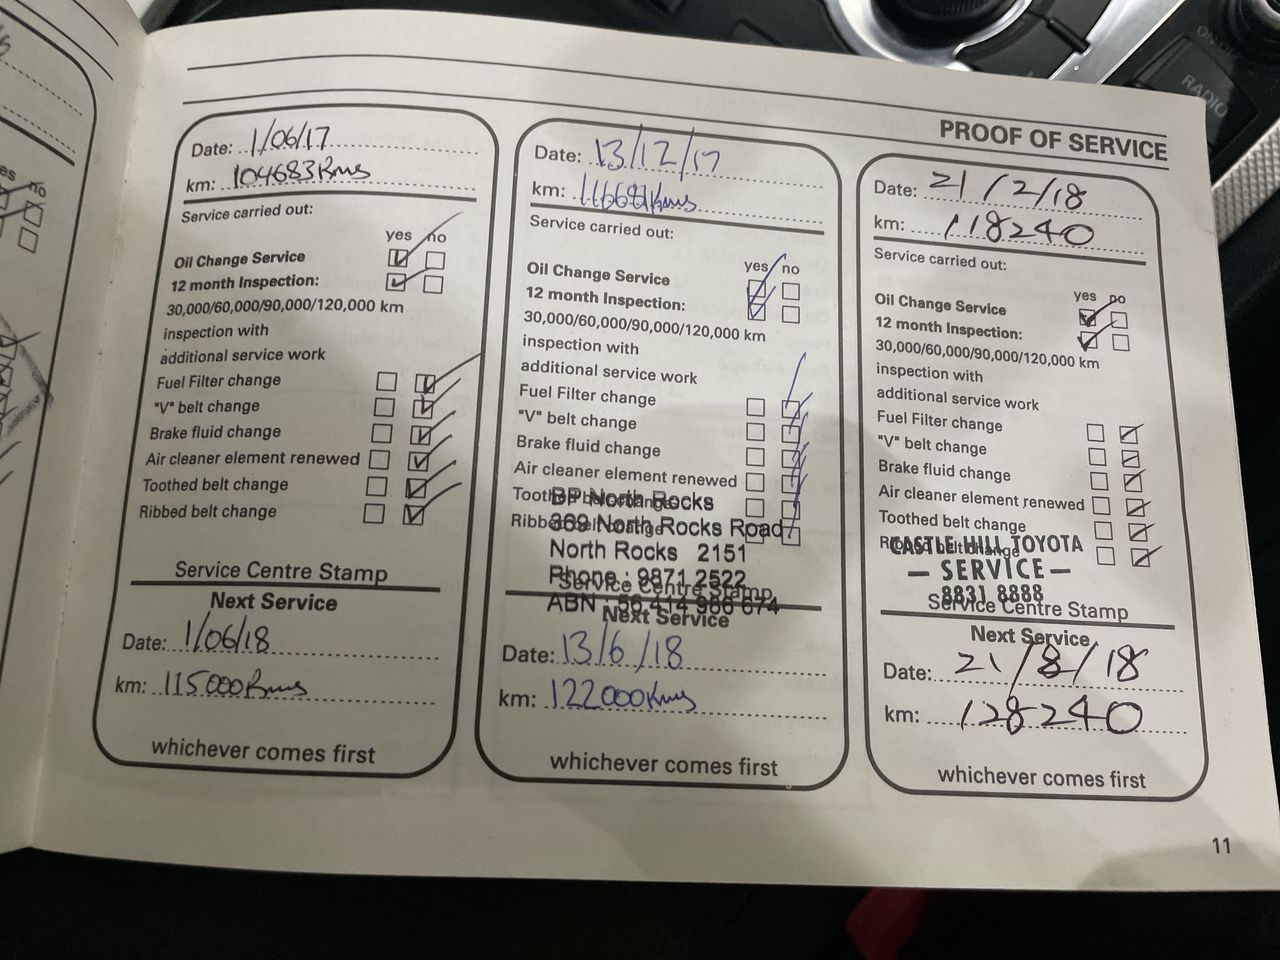 PROOF OF SERVICE
Date: 1/06/17
km: 104683Kms
Service carried out:
yes no
Oil Change Service
12 month Inspection:
30,000/60,000/90,000/120,000 km
inspection with
additional service work
Fuel Filter change
"V" belt change
Brake fluid change
Air cleaner element renewed
Toothed belt change
Ribbed belt change
Service Centre Stamp
Next Service
Date: 1/06/18
km: 115000Kms
whichever comes first
Date: 13/12/17
km:
Service carried out:
yes no
Oil Change Service
12 month Inspection:
30,000/60,000/90,000/120,000 km
inspection with
additional service work
Fuel Filter change
"V" belt change
Brake fluid change
Air cleaner element renewed
Toothed belt change
BP North Rocks
Ribbed belt change
369 North Rocks Road
North Rocks 2151
Phone : 9871 2522
Service Centre Stamp
ABN : 56 414 966 674
Next Service
Date: 13/6/18
km: 122000Kms
whichever comes first
Date: 21/2/18
km: 118240
Service carried out:
yes no
Oil Change Service
12 month Inspection:
30,000/60,000/90,000/120,000 km
inspection with
additional service work
Fuel Filter change
"V" belt change
Brake fluid change
Air cleaner element renewed
Toothed belt change
Ribbed belt change
CASTLE HILL TOYOTA
— SERVICE —
8831 8888
Service Centre Stamp
Next Service
Date: 21/8/18
km: 128240
whichever comes first
11
RADIO
es no